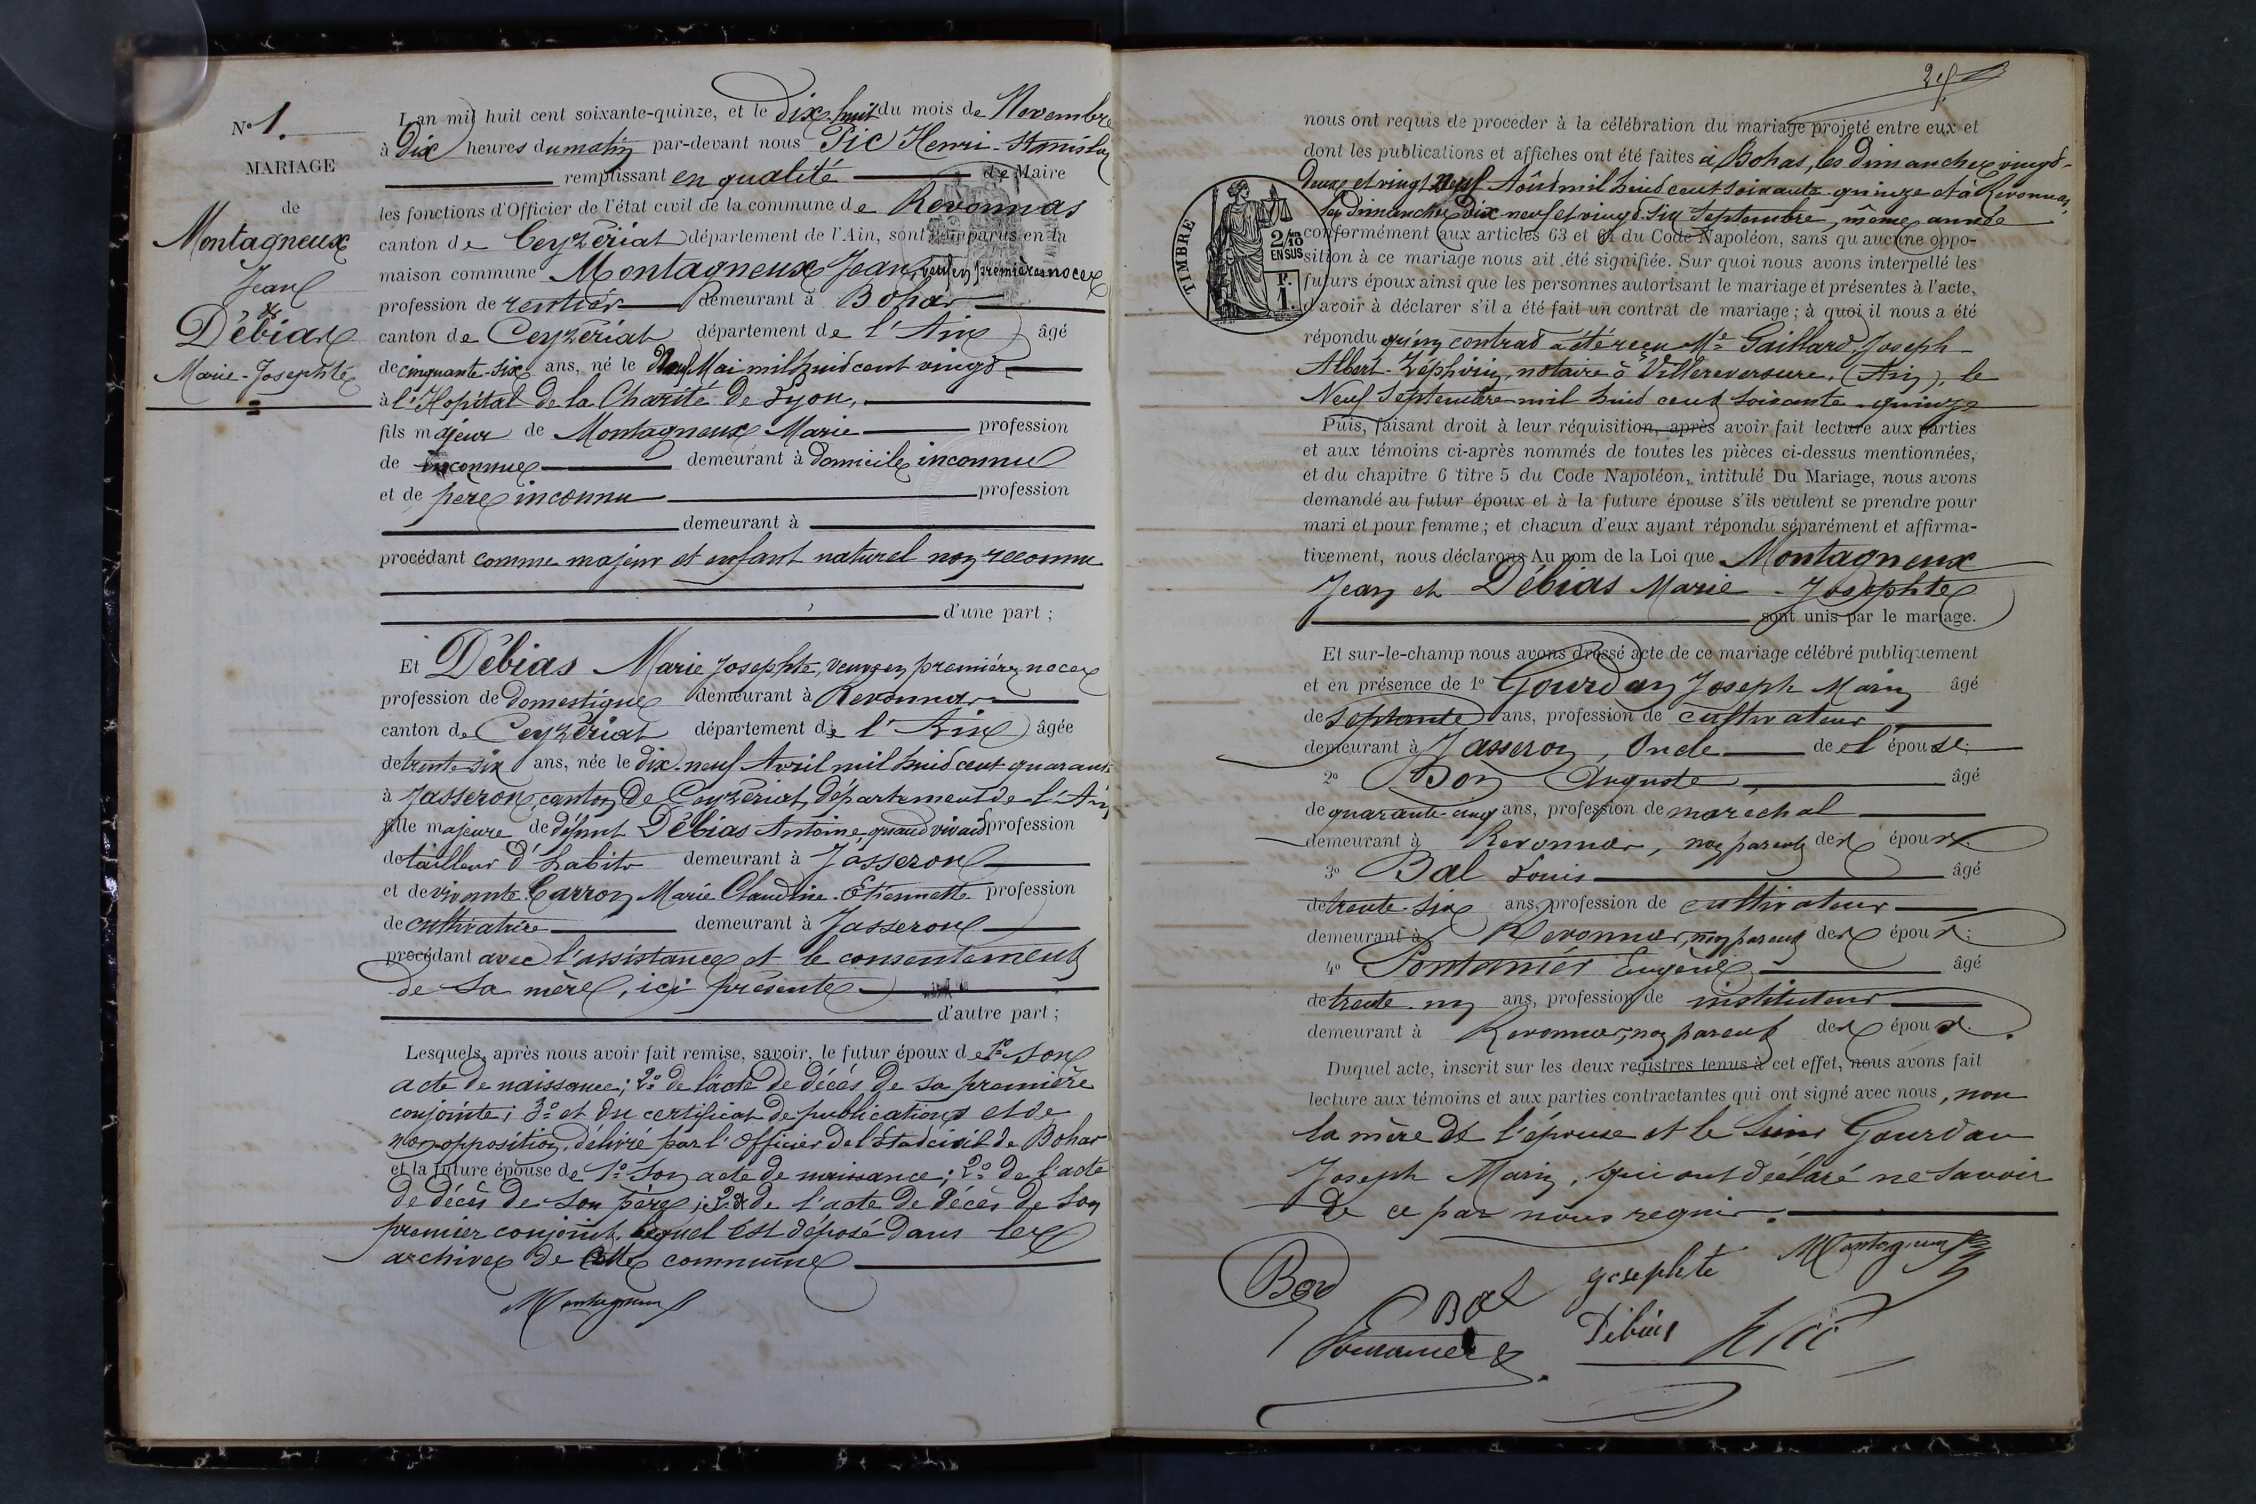 Nº 1.
MARIAGE
de
Montagneux
Jean
&
Débias
Marie-Josephte
L'an mil huit cent soixante-quinze, et le dix-huit du mois de Novembre
à Dix heures du matin par-devant nous Pic Henri-Stanislas
remplissant en qualité de Maire
les fonctions d'Officier de l'état civil de la commune de Revonnas
canton de Ceyzériat département de l'Ain, sont comparus en la
maison commune Montagneux Jean, veuf en premières noces
profession de rentier demeurant à Bohas
canton de Ceyzériat département de l'Ain âgé
de cinquante-six ans, né le Neuf Mai mil huit cent vingt
à l'Hopital de la Charité de Lyon,
fils majeur de Montagneux Marie profession
de inconnue demeurant à domicile inconnu
et de père inconnu profession
demeurant à
procédant comme majeur et enfant naturel non reconnu
d'une part ;
Et Débias Marie Josephte, veuve en premières noces
profession de domestique demeurant à Revonnas
canton de Ceyzériat département de l'Ain âgée
de trente-six ans, née le dix-neuf Avril mil huit cent quarante
à Jasseron, canton de Ceyzériat, département de l'Ain
fille majeure de défunt Débias Antoine, quand vivait profession
de tailleur d'habits demeurant à Jasseron
et de vivante Carron Marie Claudine Etiennette profession
de cultivatrice demeurant à Jasseron
procédant avec l'assistance et le consentement
de sa mère, ici présente
d'autre part ;
Lesquels, après nous avoir fait remise, savoir, le futur époux de 1º son
acte de naissance ; 2º de l'acte de décès de sa première
conjointe ; 3º et du certificat de publications et de
non opposition, délivré par l'Officier de l'Etat civil de Bohas
et la future épouse de 1º son acte de naissance ; 2º de l'acte
de décès de son père ; 3º de l'acte de décès de son
premier conjoint, lequel est déposé dans les
archives de cette commune
Montagneux
nous ont requis de procéder à la célébration du mariage projeté entre eux et
dont les publications et affiches ont été faites à Bohas, les Dimanches vingt-
deux et vingt neuf Août mil huit cent soixante-quinze et à Revonnas,
les Dimanches Dix neuf et vingt-six Septembre, même année
conformément aux articles 63 et 64 du Code Napoléon, sans qu'aucune oppo-
sition à ce mariage nous ait été signifiée. Sur quoi nous avons interpellé les
futurs époux ainsi que les personnes autorisant le mariage et présentes à l'acte,
d'avoir à déclarer s'il a été fait un contrat de mariage ; à quoi il nous a été
TIMBRE
2/10
EN SUS
F.
1.
répondu qu'un contrat a été reçu Mº Gaillard, Joseph
Albert-Zéphirin, notaire à Villereversure, (Ain), le
Neuf Septembre mil huit cent soixante-quinze
Puis, faisant droit à leur réquisition, après avoir fait lecture aux parties
et aux témoins ci-après nommés de toutes les pièces ci-dessus mentionnées,
et du chapitre 6 titre 5 du Code Napoléon, intitulé Du Mariage, nous avons
demandé au futur époux et à la future épouse s'ils veulent se prendre pour
mari et pour femme ; et chacun d'eux ayant répondu séparément et affirma-
tivement, nous déclarons Au nom de la Loi que Montagneux
Jean et Débias Marie-Josephte
sont unis par le mariage.
Et sur-le-champ nous avons dressé acte de ce mariage célébré publiquement
et en présence de 1º Gourdan Joseph Marin âgé
de septante ans, profession de cultivateur
demeurant à Jasseron, Oncle de l'épouse ;
2º Bon Auguste, âgé
de quarante-cinq ans, profession de maréchal
demeurant à Revonnas, non parent des époux.
3º Bal Louis âgé
de trente-six ans, profession de cultivateur
demeurant à Revonnas, non parent des époux ;
4º Pontanier Eugène âgé
de trente un ans, profession de instituteur
demeurant à Revonnas, non parent des époux.
Duquel acte, inscrit sur les deux registres tenus à cet effet, nous avons fait
lecture aux témoins et aux parties contractantes qui ont signé avec nous, non
la mère de l'épouse et le Sieur Gourdan
Joseph Marin, qui ont déclaré ne savoir
de ce par nous requis.
Bon
Bal
Josephte
Montagneux
Débias